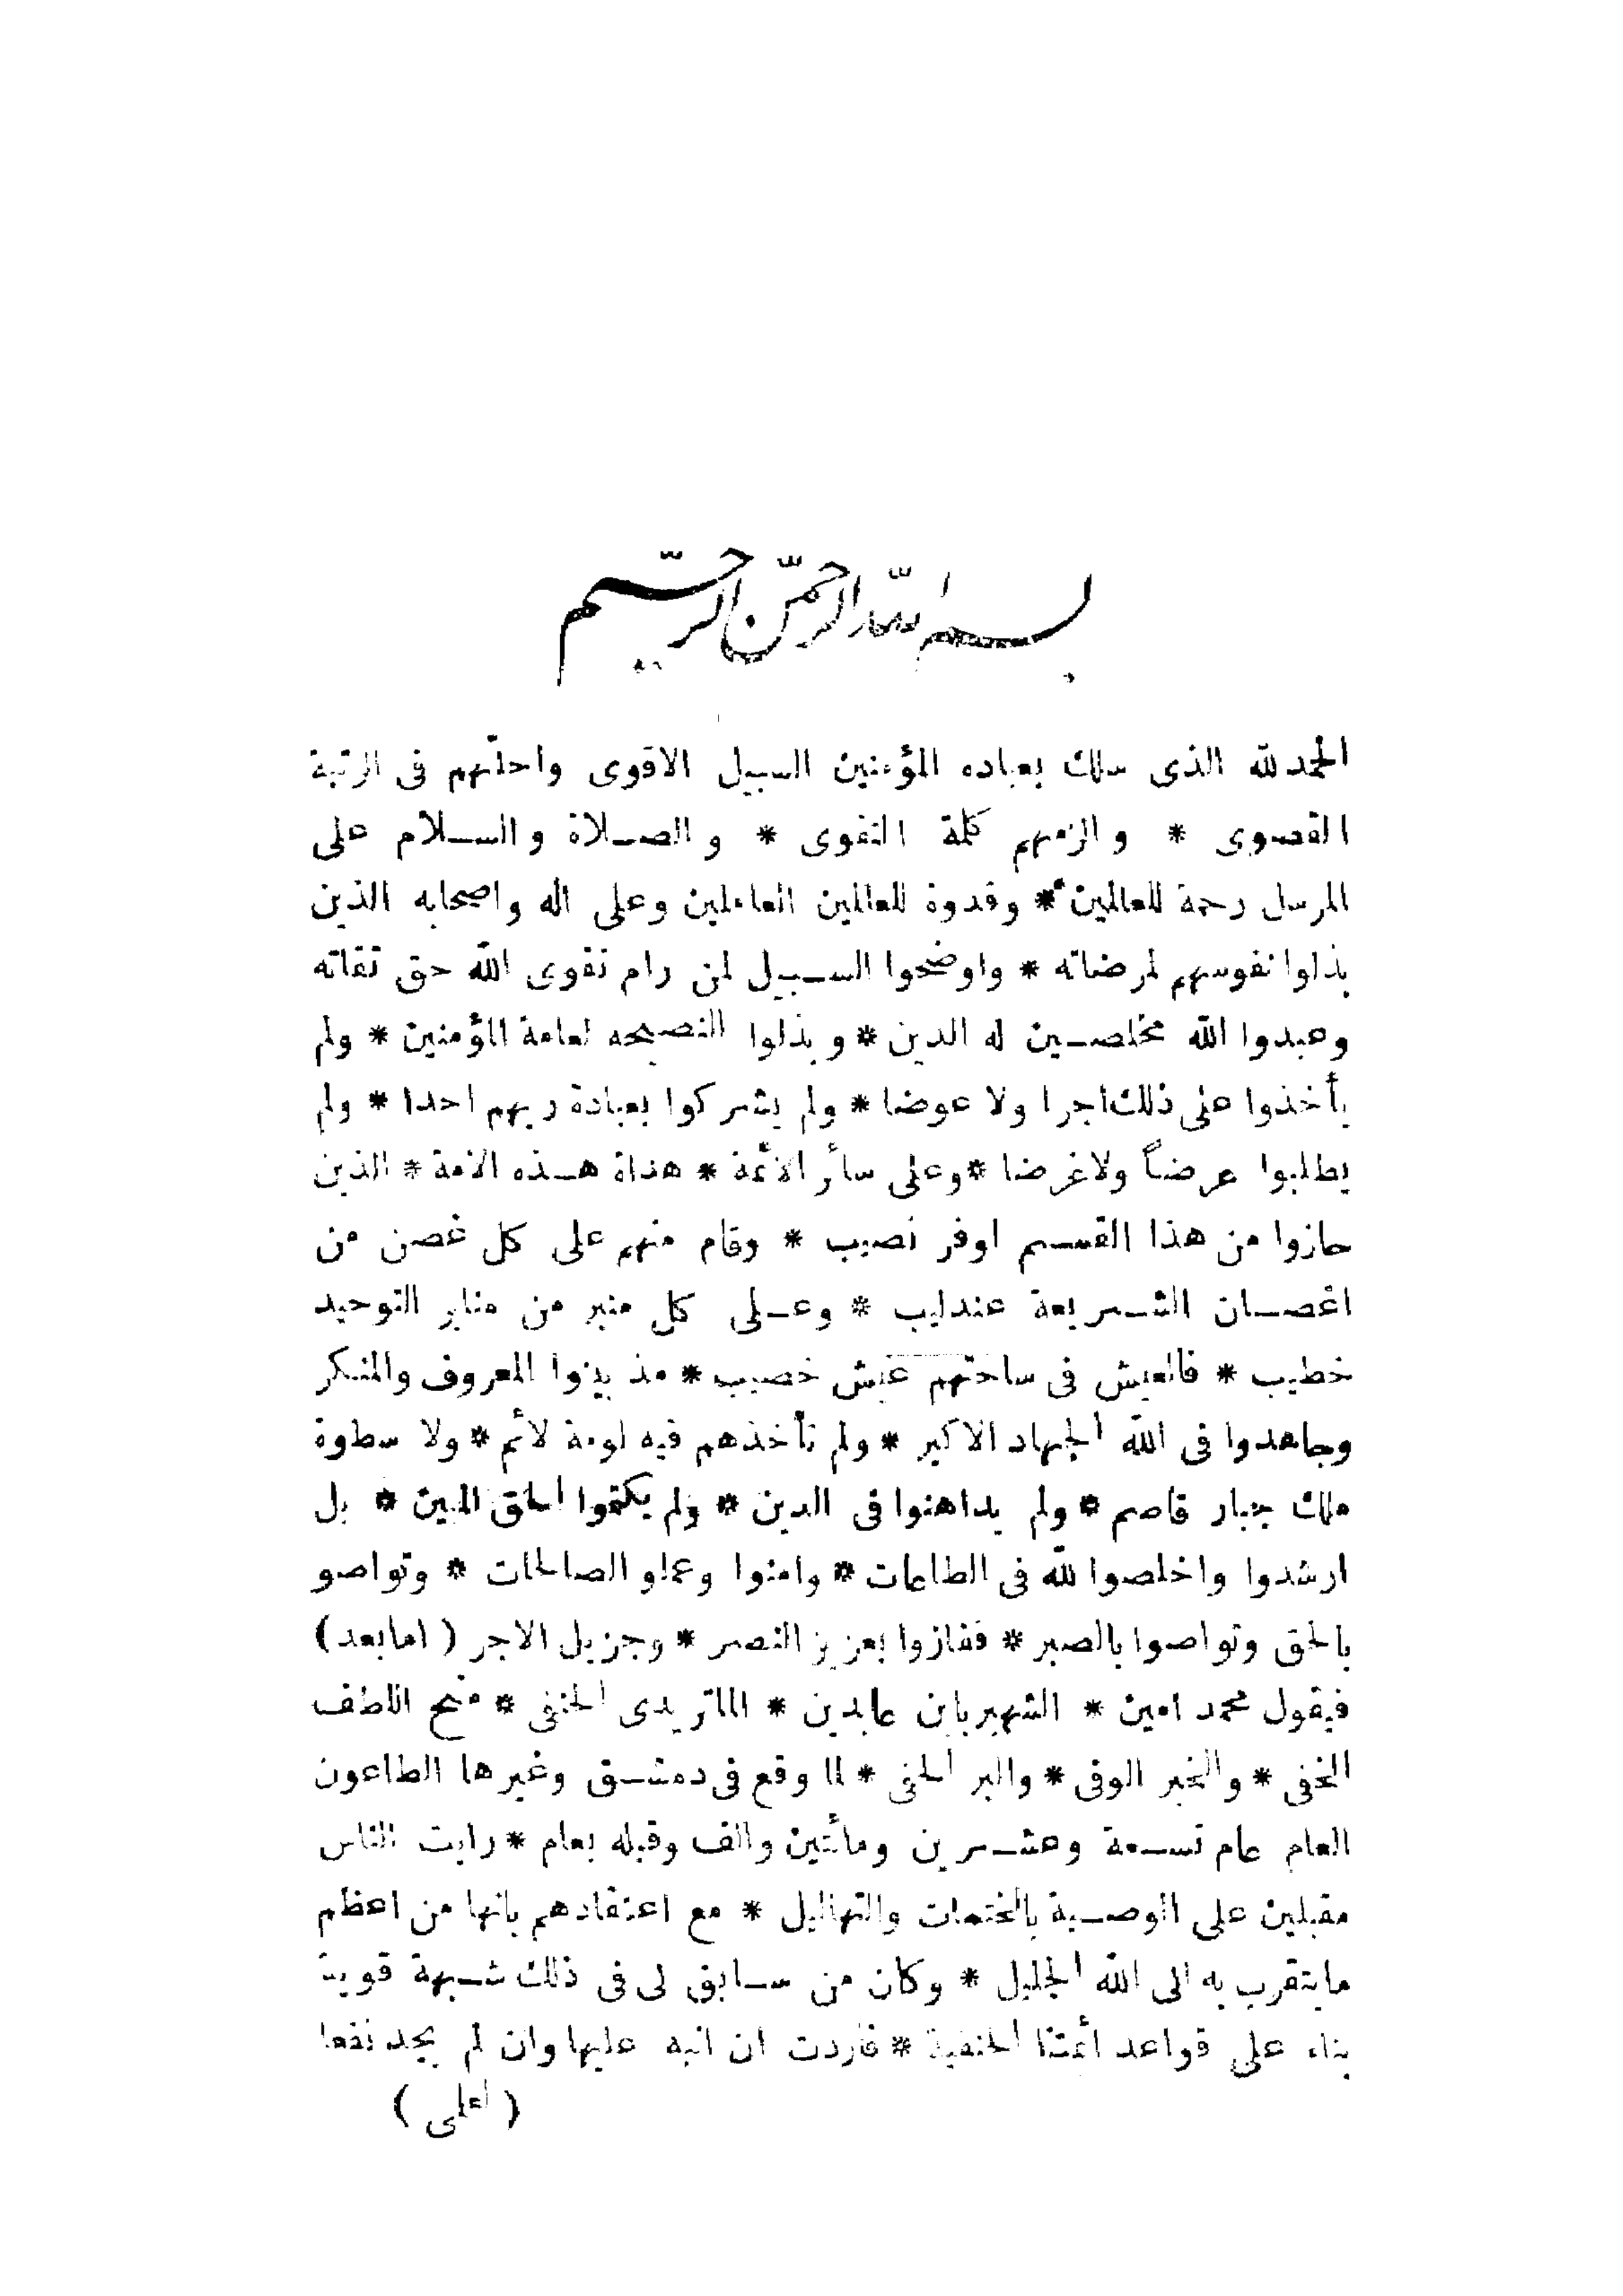 بسم الله الرحمن الرحيم
الحمد لله الذى سلك بعباده المؤمنين السبيل الاقوى واحلّهم فى الرتبة
القصوى * والزمهم كلمة التقوى * والصلاة والسلام على
المرسل رحمة للعالمين * وقدوة للعالمين العاملين وعلى اله واصحابه الذين
بذلوا نفوسهم لمرضاته * واوضحوا السبيل لمن رام تقوى الله حق تقاته
وعبدوا الله مخلصين له الدين * وبذلوا النصيحه لعامة المؤمنين * ولم
يأخذوا على ذلك اجرا ولا عوضا * ولم يشركوا بعبادة ربهم احدا * ولم
يطلبوا عرضاً ولا غرضا * وعلى سائر الائمة * هداة هذه الامة * الذين
حازوا من هذا القسم اوفر نصيب * وقام منهم على كل غصن من
اغصان الشريعة عندليب * وعلى كل منبر من منابر التوحيد
خطيب * فالعيش فى ساحتهم عيش خصيب * مذ بينوا المعروف والمنكر
وجاهدوا فى الله الجهاد الاكبر * ولم تأخذهم فيه لومة لائم * ولا سطوة
ملك جبار قاصم * ولم يداهنوا فى الدين * ولم يكتموا الحق المبين * بل
ارشدوا واخلصوا لله فى الطاعات * وامنوا وعملو الصالحات * وتواصو
بالحق وتواصوا بالصبر * ففازوا بعزيز النصر * وجزيل الاجر ( امابعد )
فيقول محمد امين * الشهير بابن عابدين * الماتريدى الحنفى * منح اللطف
الخفى * والخير الوفى * والبر الحفى * لما وقع فى دمشق وغيرها الطاعون
العام عام تسعة وعشرين ومأتين والف وقبله بعام * رايت الناس
مقبلين على الوصية بالختمات والتهاليل * مع اعتقادهم بانها من اعظم
مايتقرب به الى الله الجليل * وكان من سابق لى فى ذلك شبهة قوية
بناء على قواعد أئمتنا الحنفية * فاردت ان انبه عليها وان لم يجد نفعا
( لعلى )